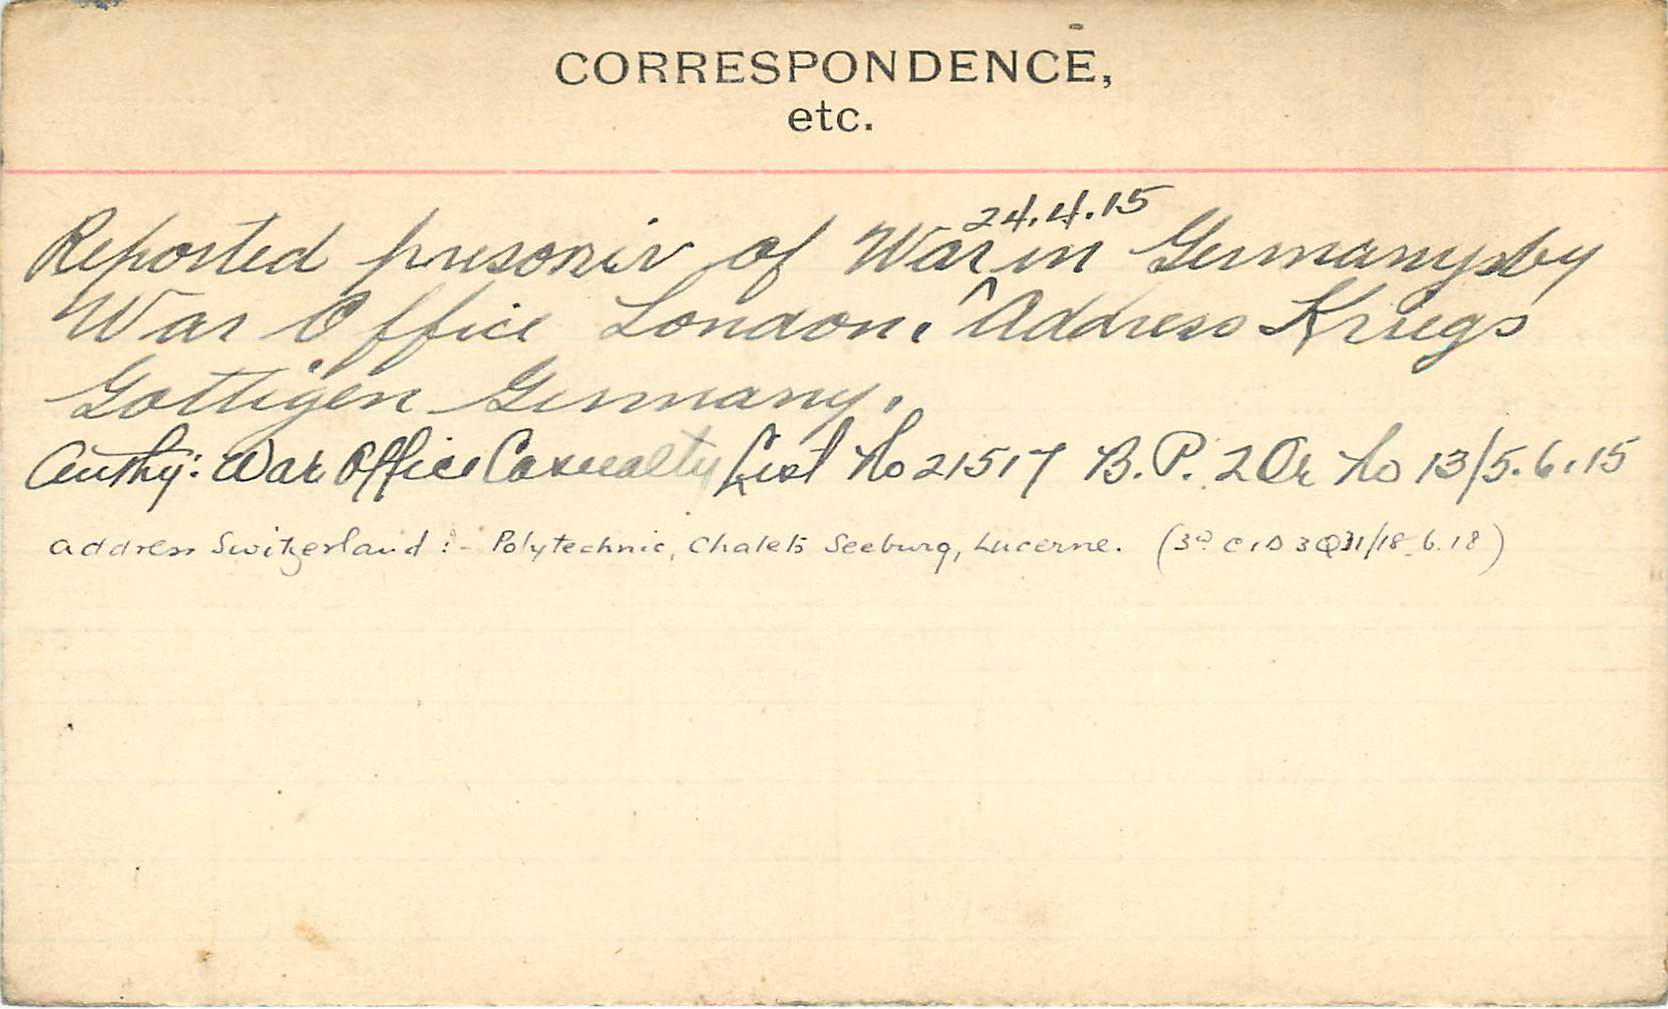 CORRESPONDENCE,
etc.
24.4.15
Reported prisonir of War in Germany by
War Office London. Address Kriegs
Gottigen Germany.
Authy: War Office Casualty List No 21517 B.P. 2 Or No 13/5.6.15
address Switzerland :- Polytechnic, Chalets Seeburg, Lucerne. (